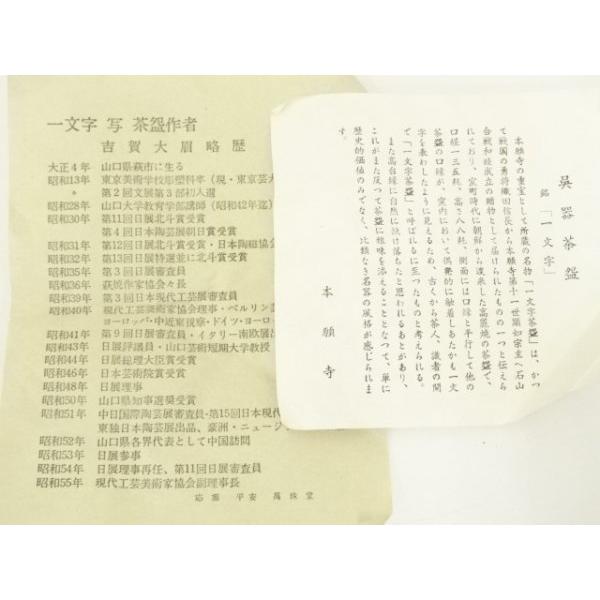 一文字 写 茶盌作者
吉賀大眉略歴
大正4年 山口県萩市に生る
昭和13年 東京美術学校彫塑科卒(現・東京芸大
〃 第2回文展第3部初入選
昭和28年 山口大学教育学部講師(昭和42年迄)
昭和30年 第11回日展北斗賞受賞
第4回日本陶芸展朝日賞受賞
昭和31年 第12回日展北斗賞受賞・日本陶磁協会
昭和32年 第13回日展特選並に北斗賞受賞
昭和35年 第3回日展審査員
昭和36年 萩焼作家協会々長
昭和39年 第3回日本現代工芸展審査員
昭和40年 現代工芸美術家協会理事・ベルリン芸
ヨーロッパ・中近東視察・ドイツ・ヨーロ
昭和41年 第9回日展審査員・イタリー南欧
昭和43年 日展評議員・山口芸術短期大学教授
昭和44年 日展総理大臣賞受賞
昭和46年 日本芸術院賞受賞
昭和48年 日展理事
昭和50年 山口県知事選奨受賞
昭和51年 中日国際陶芸展審査員・第15回日本現代
東独日本陶芸展出品、豪洲・ニュージ
昭和52年 山口県各界代表として中国訪問
昭和53年 日展参事
昭和54年 日展理事再任、第11回日展審査員
昭和55年 現代工芸美術家協会副理事長
平安 萬珠堂
呉器茶盌
銘「一文字」
本願寺の重宝として所蔵の名物「一文字茶盌」は、かつ
て戦国の勇将織田信長から本願寺第十一世顕如宗主へ石山
合戦和睦成立の贈物として届けられたものの一つと伝えら
れており、室町時代に朝鮮から渡来した高麗焼の茶盌で、
口径一三五粍、高さ八八粍、側面には口縁と平行して他の
茶盌の口縁が、窯内において偶発的に触着しあたかも一文
字を表わしたように見えるため、古くから茶人、識者の間
で「一文字茶盌」と呼ばれるに至つたものと考えられる。
また高台縁に自然に欠け落ちたと思われるあとがあり、
これがまた反つて茶盌に雅味を添えることとなつて、単に
歴史的価値のみでなく、比類なき名器の風格が感じられま
す。
本願寺